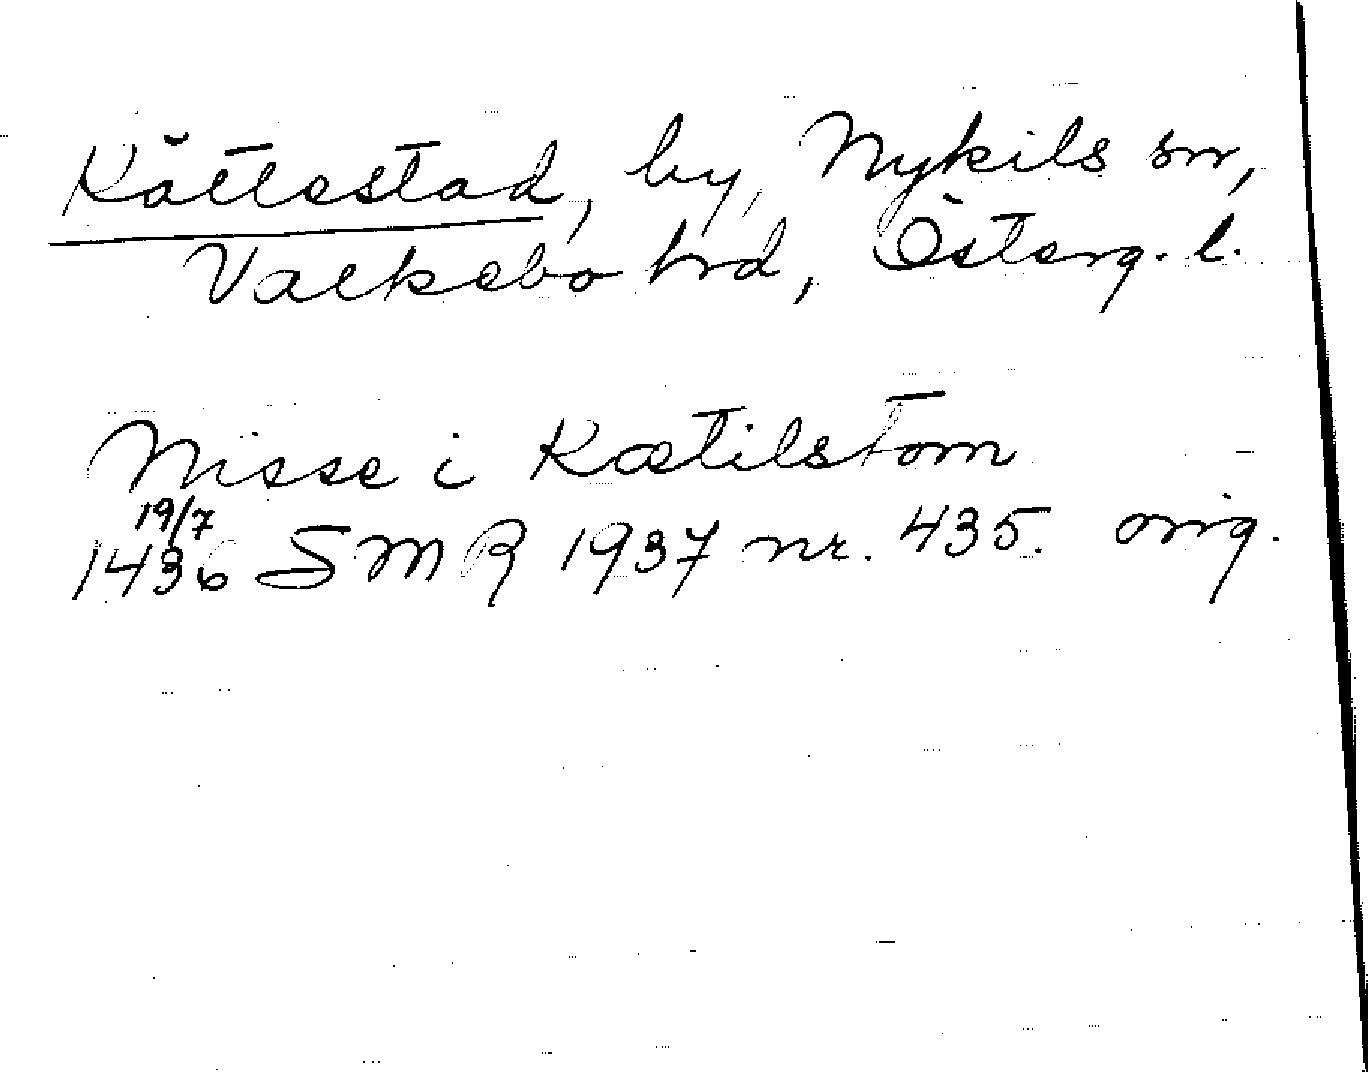 Kättestad, by, Nykils sn,
Valkebo hrd, Österg. l.
Nisse i Kætilstom
19/7
1436 SMR 1937 nr. 435. orig.